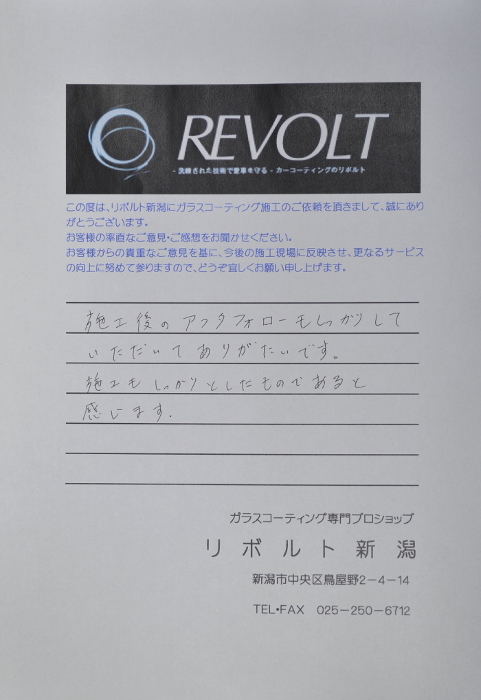 REVOLT
- 洗練された技術で愛車を守る - カーコーティングのリボルト
この度は、リボルト新潟にガラスコーティング施工のご依頼を頂きまして、誠にあり
がとうございます。
お客様の率直なご意見・ご感想をお聞かせください。
お客様からの貴重なご意見を基に、今後の施工現場に反映させ、更なるサービス
の向上に努めて参りますので、どうぞ宜しくお願い申し上げます。
施工後のアフタフォローもしっかりして
いただいてありがたいです。
施工もしっかりとしたものであると
感じます.
ガラスコーティング専門プロショップ
リボルト新潟
新潟市中央区鳥屋野2-4-14
TEL・FAX 025-250-6712